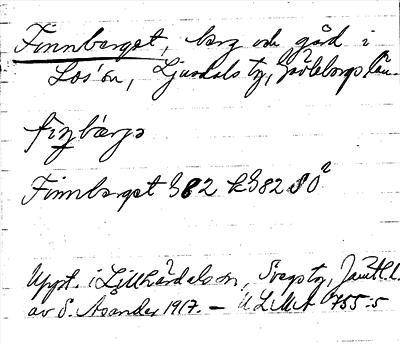 Finnberget, berg och gård i
Los' sn, Ljusdals tg, Gävleborgs län.
Finnberget G82 kg 82 SO²
Uppt. i Lillhärdals sn, Svegs tg, Jämtl. l.
av S. Asander 1917. — ULMA 755:5